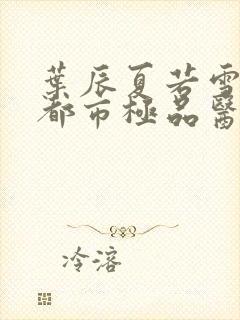 葉辰夏若雪
都市極品醫
冷溶